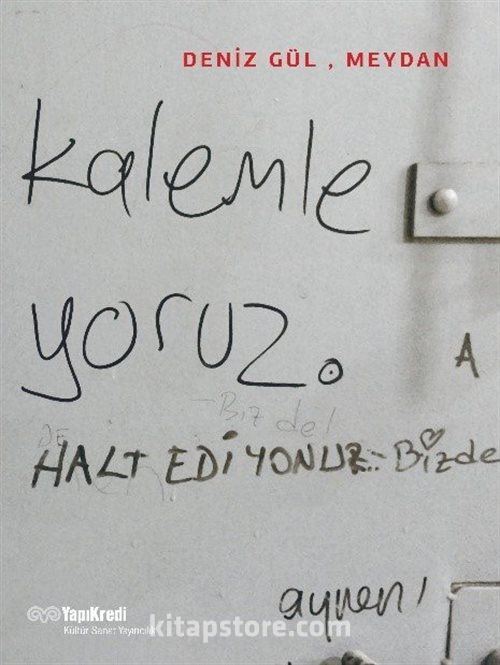 DENİZ GÜL , MEYDAN
kalemle
yoruz.
A
-Bizde!
DE
HALT EDİYONUZ.- Bizde
aynen!
YapıKredi
Kültür Sanat Yayıncılık
kitapstore.com